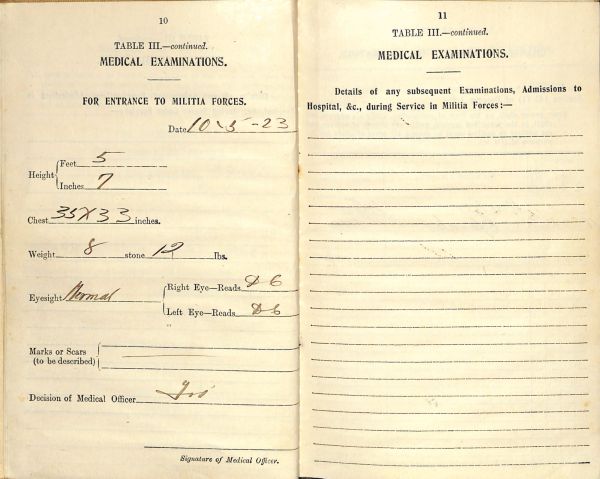 10
TABLE III.—continued.
MEDICAL EXAMINATIONS.
FOR ENTRANCE TO MILITIA FORCES.
Date 10-5-23
Height { Feet 5
Inches 7
Chest 35X33 inches.
Weight 8 stone 12 lbs.
Eyesight Normal { Right Eye—Reads D6
Left Eye—Reads D6
Marks or Scars
(to be described)
Decision of Medical Officer
Signature of Medical Officer.
11
TABLE III.—continued.
MEDICAL EXAMINATIONS.
Details of any subsequent Examinations, Admissions to
Hospital, &c., during Service in Militia Forces:—